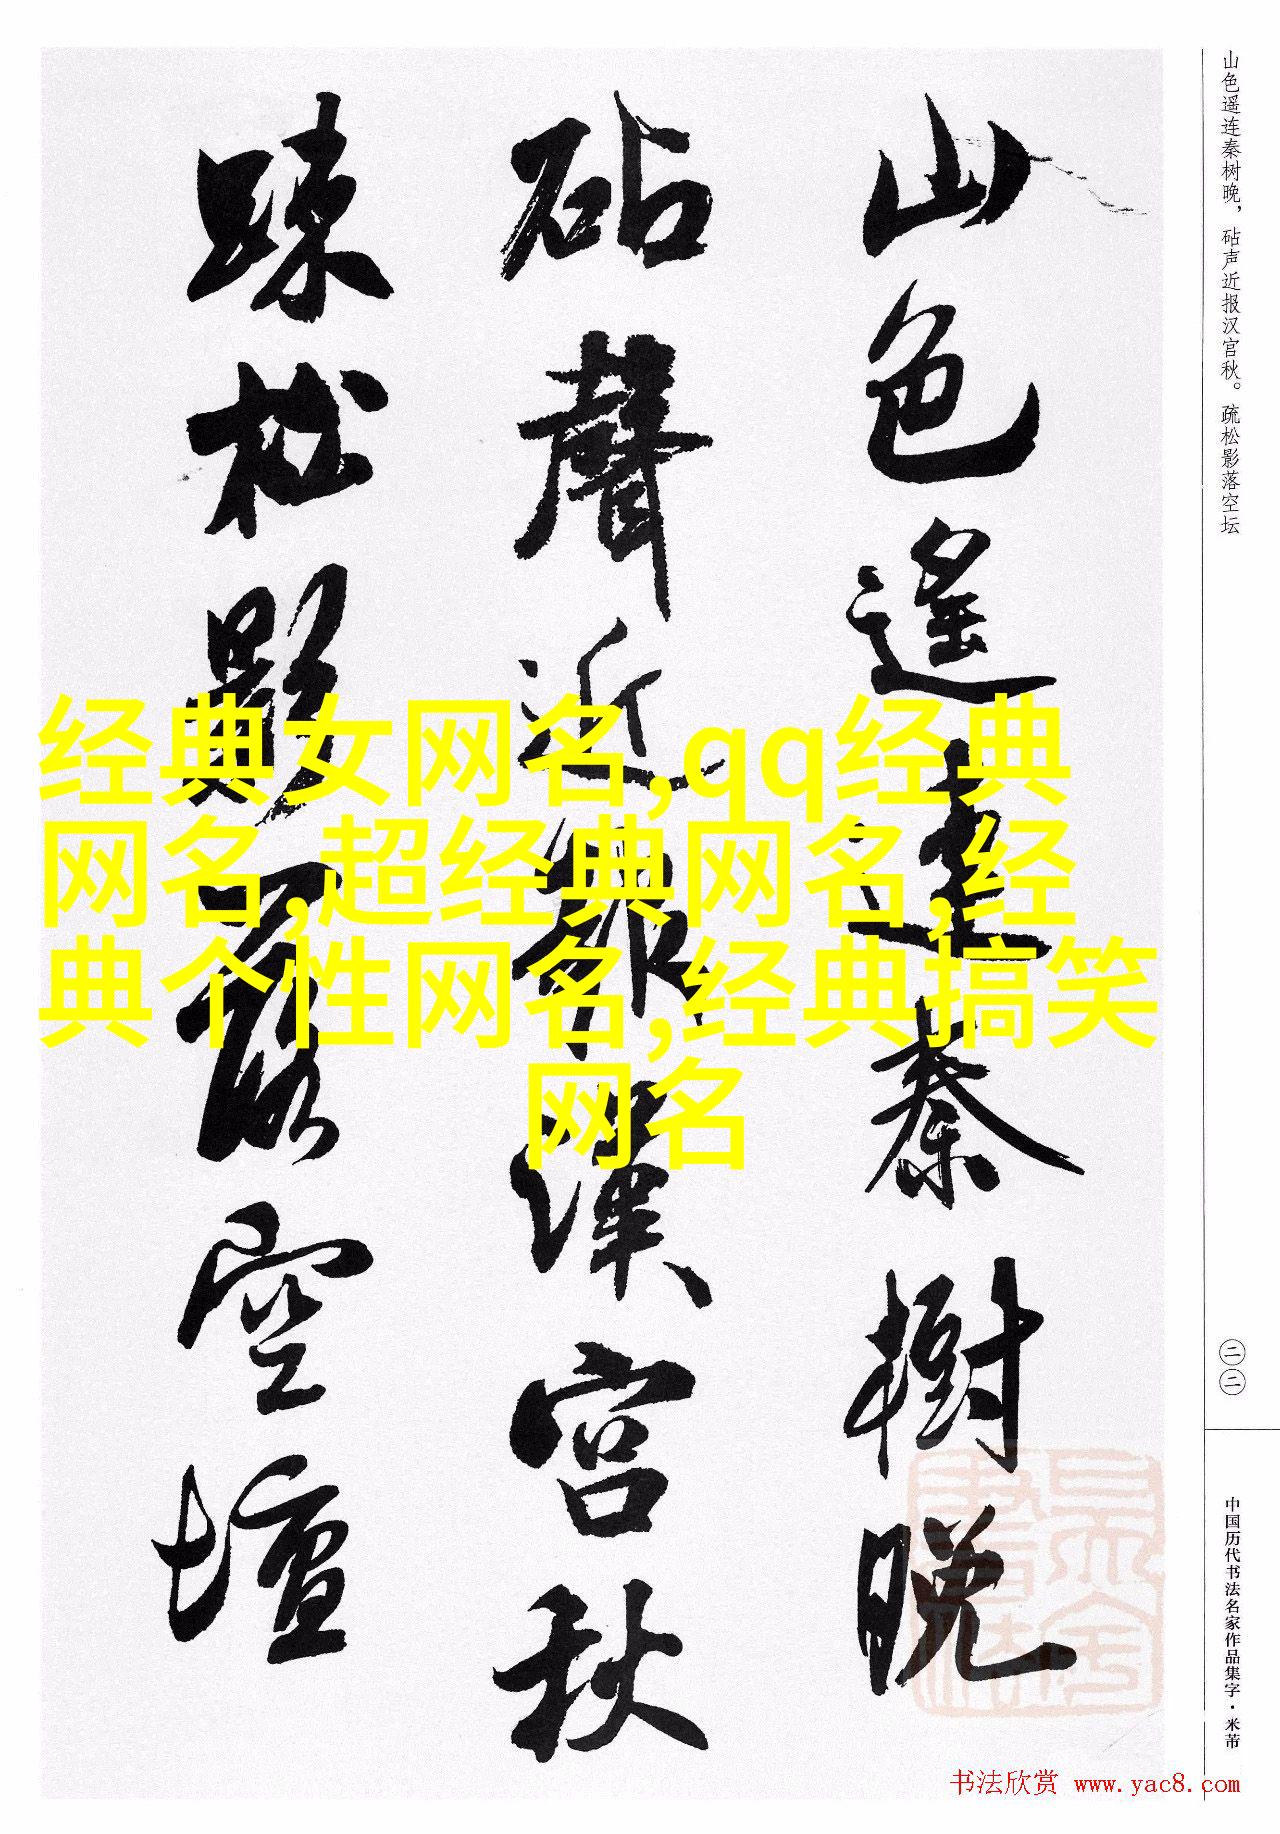 山色遥连秦树晚，砧声近报汉宫秋。疏松影落空坛
山色遙連秦樹晚
砧聲近報漢宮秋
踈松影落空壇
经典女网名,qq经典
网名,超经典网名,经
典个性网名,经典搞笑
网名
二二
中国历代书法名家作品集字·米芾
书法欣赏 www.yac8.com